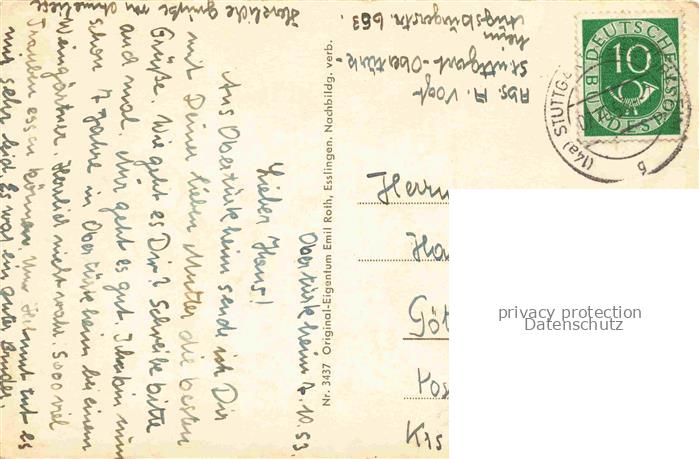 Obertürkheim, 7.10.53
Lieber Hans!
Aus Obertürkheim sende ich Dir
mit Deiner lieben Mutter die besten
Grüße. Wie geht es Dir? Schreibe bitte
auch mal. Mir geht es gut. Ich bin nun
schon 7 Jahre in Obertürkheim bei einem
Weingärtner. Herrlich nicht wahr. Sooo viel
Trauben essen können. Um tut es
mir sehr leid. Es war ein guter Bruder.
Herzliche Grüße
Abs. A. Vogt
Stuttgart-Obertürk-
heim
Augsburgerstr. 663.
Nr. 3437 Original-Eigentum Emil Roth, Esslingen. Nachbildg. verb.
DEUTSCHE BUNDESPOST
10
(14a) STUTTG
b
Herrn
Ha
Göt
Pos
Krs
privacy protection
Datenschutz